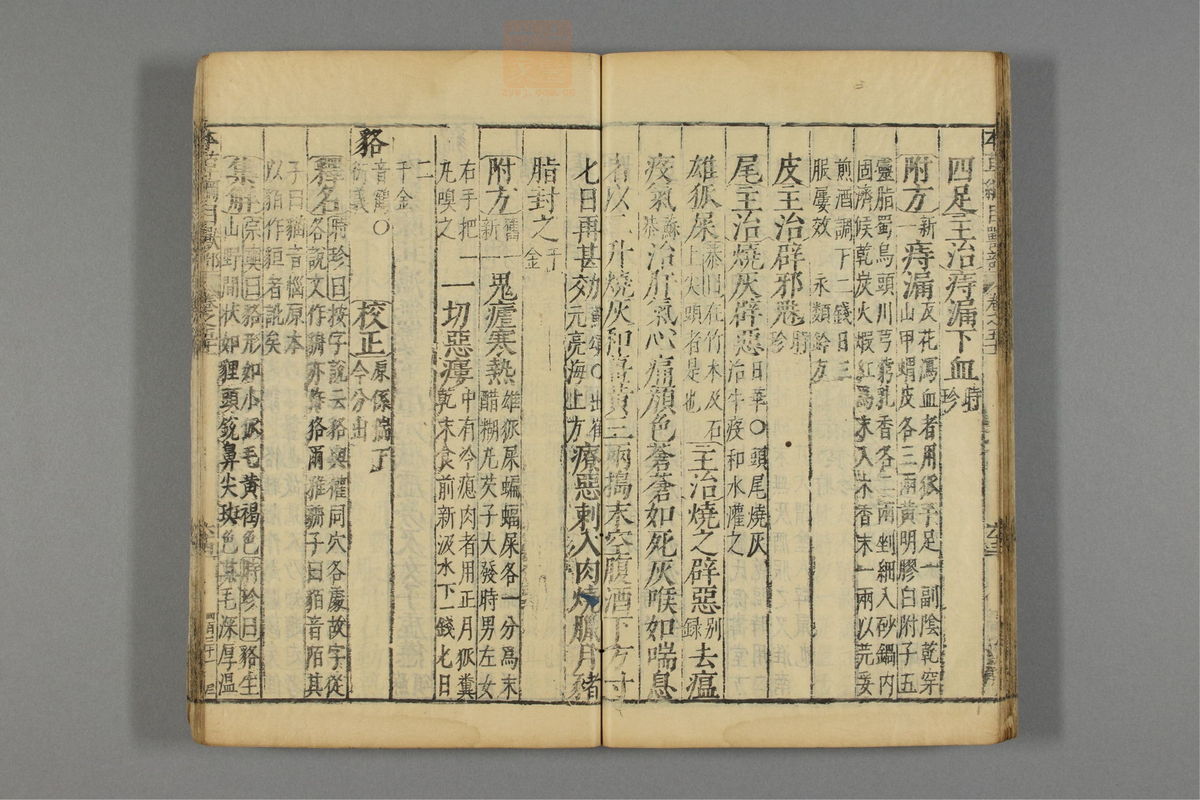 四足主治痔漏下血時珍
附方新一痔漏反花瀉血者用狐手足一副陰乾穿
山甲蝟皮各三兩黃明膠白附子五
靈脂蜀烏頭川芎藭乳香各二兩剉細入砂鍋內
固濟候乾炭火煅紅爲末入木香末一兩以芫荽
煎酒調下二錢日三
服屢效 永類鈐方
皮主治辟邪魅時珍
尾主治燒灰辟惡日華○頭尾燒灰
治牛疫和水灌之
雄狐屎恭曰在竹木及石
上尖頭者是也主治燒之辟惡別錄去瘟
疫氣蘇恭治肝氣心痛顏色蒼蒼如死灰喉如喘息
者以二升燒灰和薑黃三兩搗末空腹酒下方寸
七日再甚效蘇頌○出崔
元亮海上方療惡刺入肉燒臘月豬
脂封之千金
附方舊一
新一鬼瘧寒熱雄狐屎蝙蝠屎各一分爲末
醋糊丸芡子大發時男左女
右手把一
丸嗅之 一切惡瘻中有冷瘜肉者用正月狐糞
乾末食前新汲水下一錢七日
二
千金
貉音鶴○
衍義 校正原係
今分出
釋名時珍曰按字說云貉與獾同穴各處故字從
各說文作貈亦作狢爾雅貈子曰貊音陌其
子曰貆音
以貊作狟者訛矣
集解宗奭曰貉形如小狐毛黃褐色時珍曰貉生
山野間狀如貍頭銳鼻尖斑色其毛深厚溫